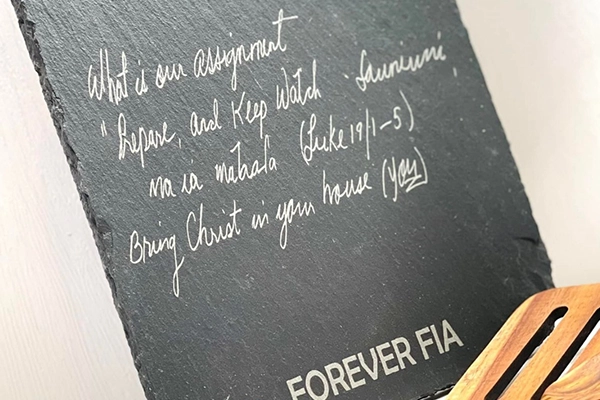 What is our assignment
"Prepare, and Keep Watch "Sauniuni"
ma ia mataala (Luke 19/1-5)
Bring Christ in your house (you)
FOREVER FIA